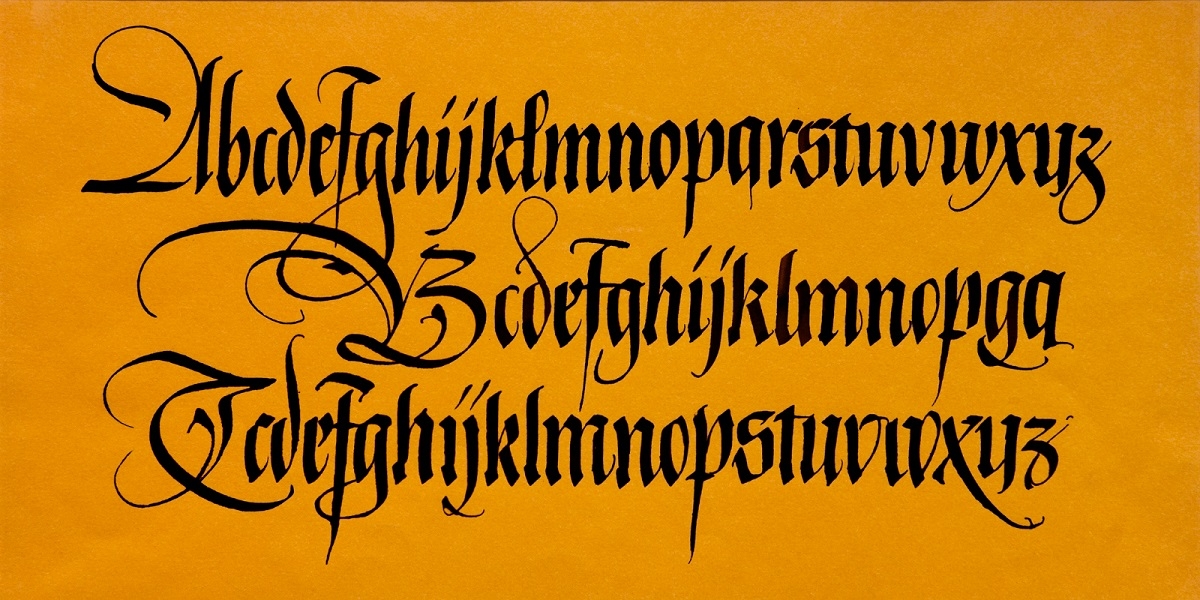 Abcdefghijklmnopqrstuvwxyz
Bcdefghijklmnopga
Tcdefghijklmnopstuvwxyz